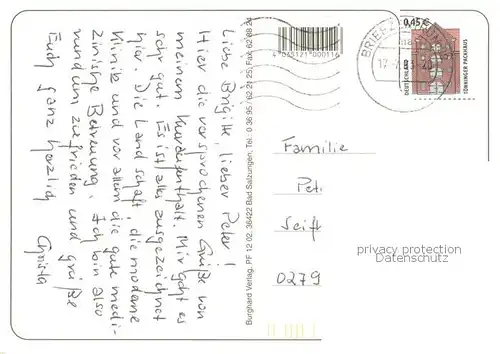 Liebe Brigitte, lieber Peter!
Hier die versprochenen Grüße von
meinem Kuraufenthalt. Mir geht es
sehr gut. Es ist alles ausgezeichnet
hier. Die Landschaft, die moderne
Klinik und vor allem die gute medi-
zinische Betreuung. Ich bin also
rundum zufrieden und grüße
Euch ganz herzlich Christa
Burghard Verlag, PF 12 02, 36422 Bad Salzungen, Tel.: 0 36 95 / 62 21 25, Fax 62 88 24
4 075121 000116
BRIEFZENTRUM
17
0,45€
DEUTSCHLAND
TÖNNINGER PACKHAUS
Familie
Pet
Seift
0279
privacy protection
Datenschutz